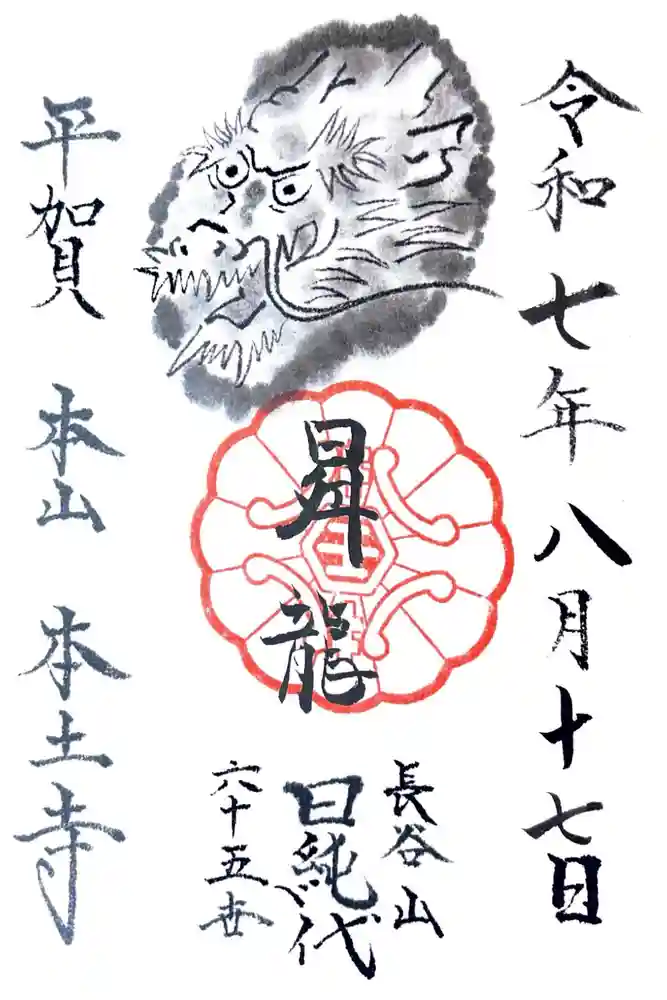 令和七年八月十七日
昇龍
長谷山
日純代
六十五世
平賀 本山 本土寺